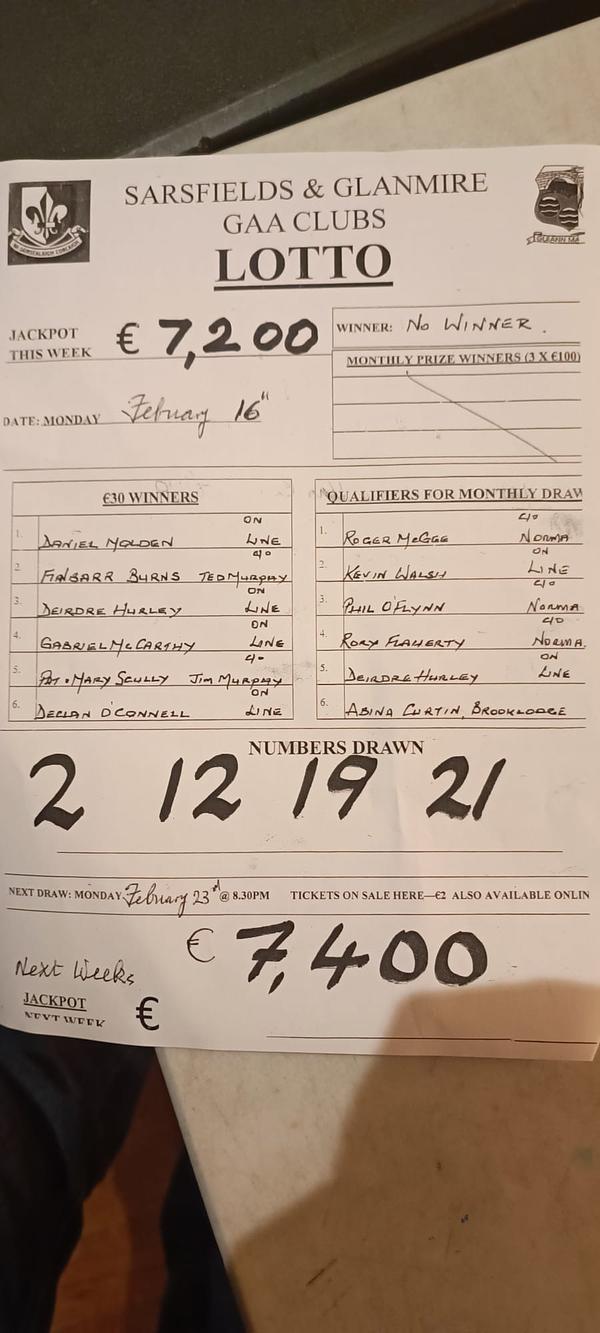 SARSFIELDS & GLANMIRE
GAA CLUBS
LOTTO
JACKPOT
THIS WEEK € 7,200
WINNER: NO WINNER.
MONTHLY PRIZE WINNERS (3 X €100)
DATE: MONDAY February 16th
€30 WINNERS
1. DANIEL MOLDEN ON LINE
2. FINBARR BURNS c/o TED MURPHY
3. DEIRDRE HURLEY ON LINE
4. GABRIEL McCARTHY ON LINE
5. PAT + MARY SCULLY c/o JIM MURPHY
6. DECLAN O'CONNELL ON LINE
QUALIFIERS FOR MONTHLY DRAW
1. ROGER McGEE c/o NORMA
2. KEVIN WALSH ON LINE
3. PHIL O'FLYNN c/o NORMA
4. RORY FLAHERTY c/o NORMA.
5. DEIRDRE HURLEY ON LINE
6. ABINA CURTIN, BROOKLODGE
NUMBERS DRAWN
2 12 19 21
NEXT DRAW: MONDAY February 23rd @ 8.30PM TICKETS ON SALE HERE—€2 ALSO AVAILABLE ONLIN
Next Weeks € 7,400
JACKPOT
NEXT WEEK €